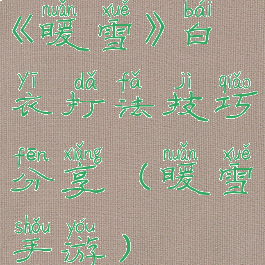 nuǎn xuě bái
《暖雪》白
yī dǎ fǎ jì qiǎo
衣打法技巧
fēn xiǎng nuǎn xuě
分享（暖雪
shǒu yóu
手游）